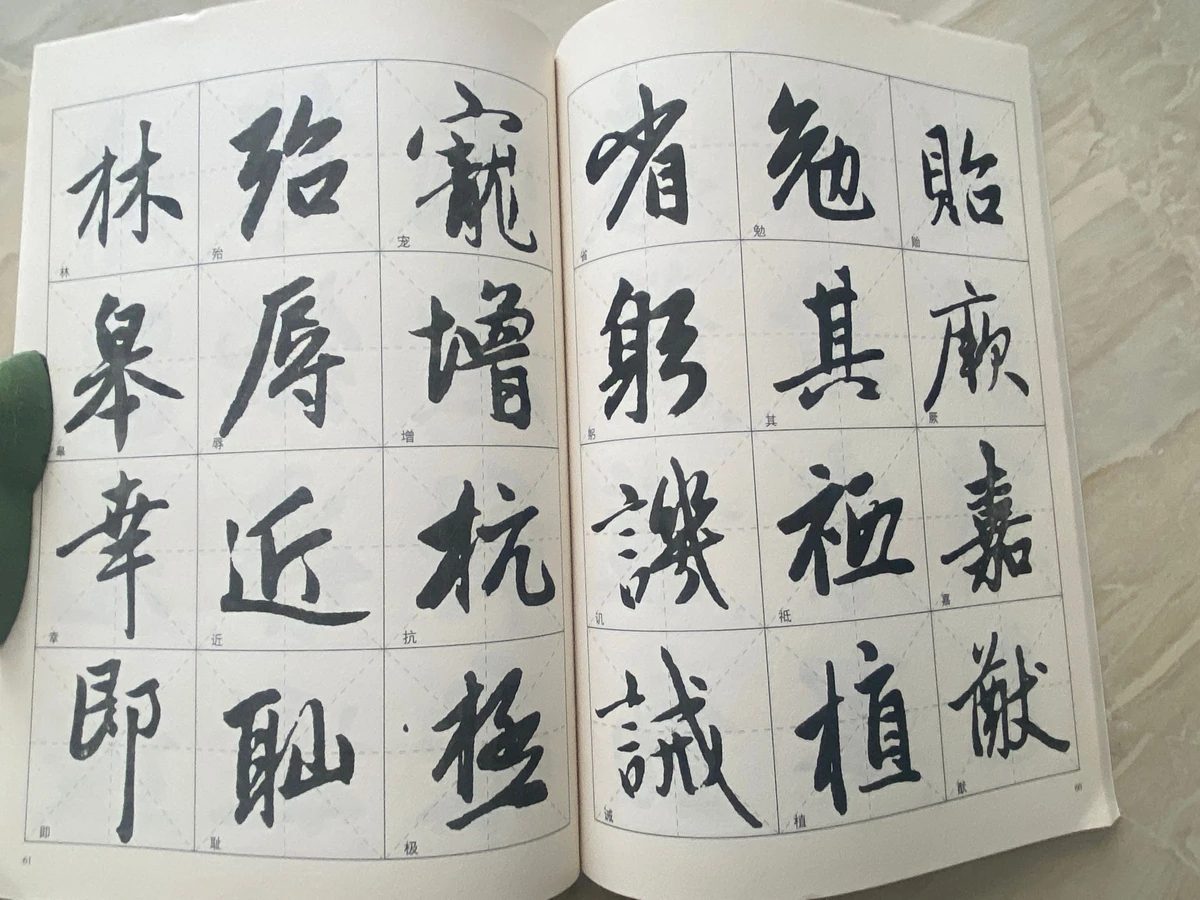 貽厥嘉猷
贻厥嘉猷
勉其祗植
勉其祗植
省躬譏誡
省躬讥诫
60
寵增抗極
宠增抗极
殆辱近恥
殆辱近耻
林皋幸即
林皋幸即
61